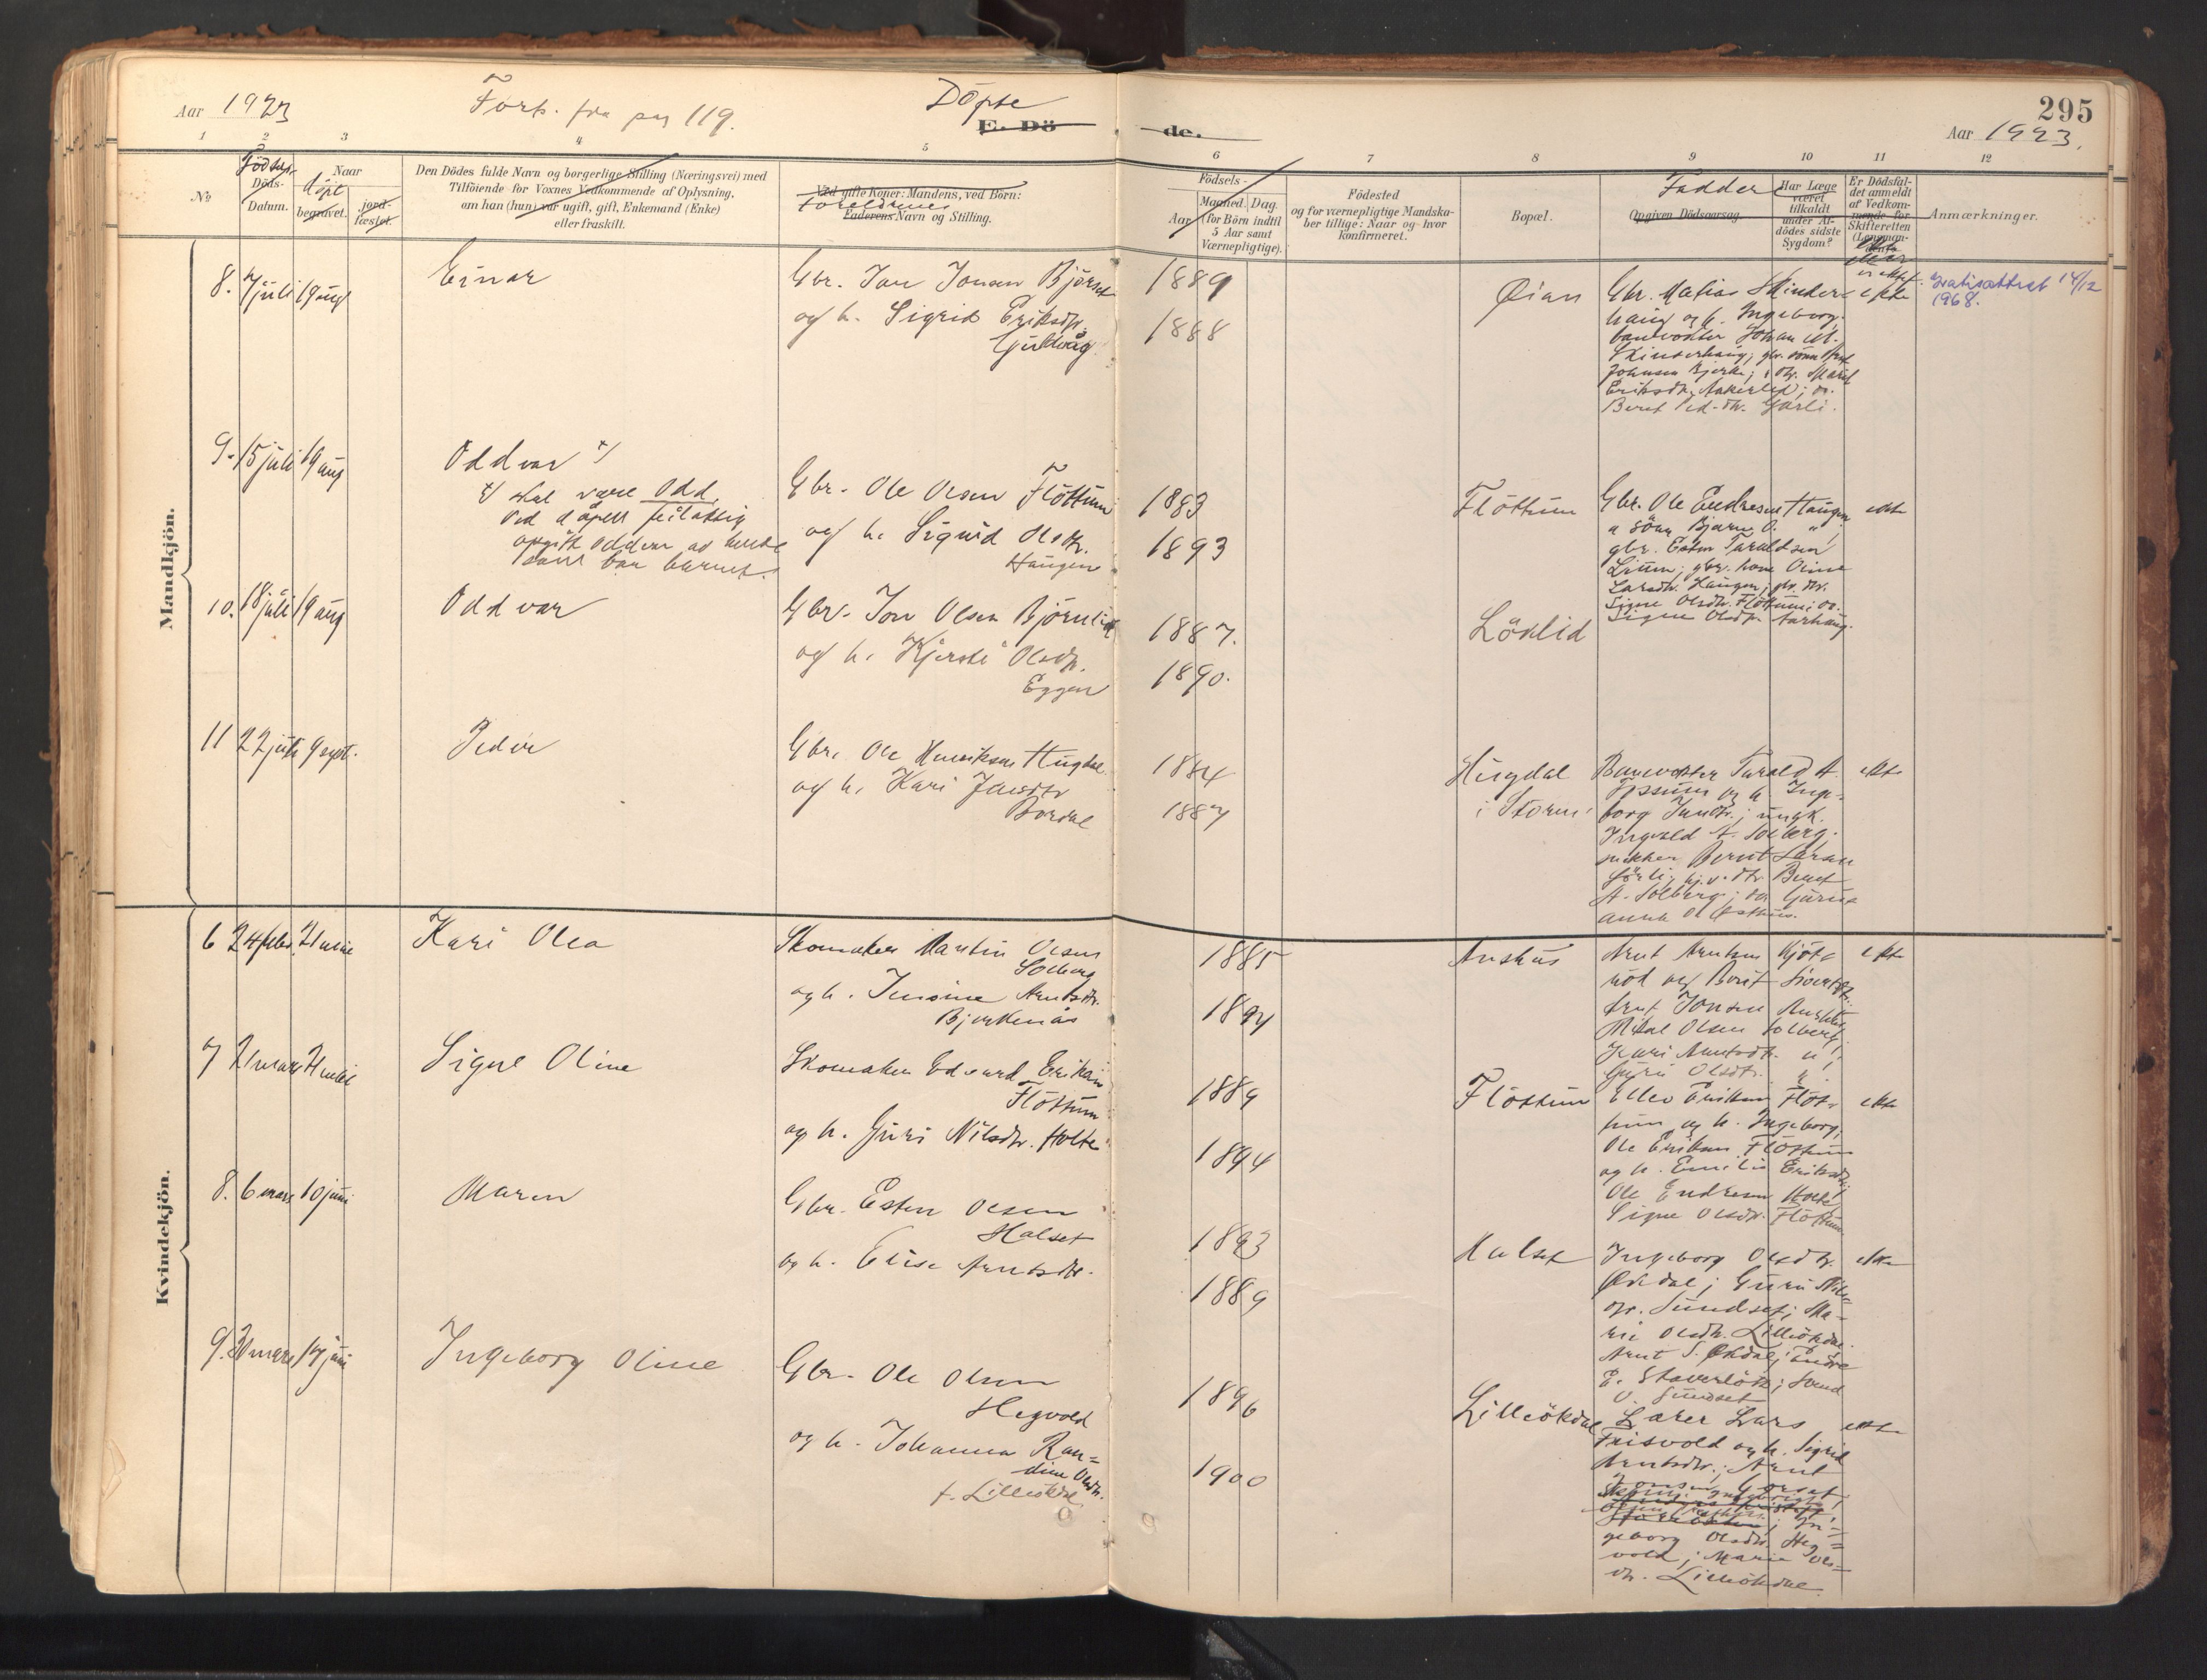 Aar 1923
Forts. fra pag 119.
Döpte
E. Dö
de.
295
Aar 1923.
1 2 3 4 5 6 7 8 9 10 11 12
No
Födsels-
Döds-
Datum.
Naar
döpt
begravet.
jord-
fæstet.
Den Dödes fulde Navn og borgerlige Stilling (Næringsvei) med
Tilföiende for Voxnes Vedkommende af Oplysning,
om han (hun) var ugift, gift, Enkemand (Enke)
eller fraskilt.
Ved gifte Koner: Mandens, ved Börn:
Forældrenes
Faderens Navn og Stilling.
Födsels-
Aar
Maaned. Dag.
(for Börn indtil
5 Aar samt
Værnepligtige).
Födested
og for værnepligtige Mandska-
ber tillige: Naar og hvor
konfirmeret.
Bopæl.
Faddere
Opgiven Dödsaarsag.
Har Læge
været
tilkaldt
under Af-
dödes sidste
Sygdom?
Er Dödsfal-
det anmeldt
af Vedkom-
mende for
Skifteretten
(Lensman-
Anmærkninger.
Mandkjön.
8. 7 juli 19 aug
Einar
Gbr. Jon Jonsen Björset
og h. Sigrid Eriksdtr.
1889
1888
Øian
Gbr. Matias Skinder-
haug og h. Ingeborg,
banevokter Johan M.
Skinderhaug; gbr. sönn
Johnsen Bjerke;
Eriksdtr.
Berit Ped.dtr. Gjörli.
ekte
Gratisattest 14/12
1968.
9. 15 juli 19 aug
Oddvar x/
x/ skal være Odd.
Ved dåpen feilaktig
opgitt Oddvar av henne
som bar barnet.
Gbr. Ole Olsen Flöttum
og h. Sigrid Olsdtr.
Haugen
1883
1893
Flöttum
Gbr. Ole Endresen Haugen
a sönn Bjarne O. "
gbr. Esten Taraldsen
Lium; gbr. kone Oline
Larsdtr. Haugen; gbr. dtr.
Signe Olsdtr. Flöttum; do.
Signe Olsdtr.
ekte
10. 18 juli 19 aug
Oddvar
Gbr. Jon Olsen Björnli
og h. Kjersti Olsdtr.
Eggen
1887.
1890.
Löklid
11 22 juli 9 sept.
Peder
Gbr. Ole Henriksen Hugdal
og h. Kari Jensdtr
Bordal
1884
1887
Hugdal
i Storen
Banevokter Tarald A.
og h. Inge-
borg; ungk.
Ingvald A. Solberg.
snekker Bernt Larsen
Görli; hj.v. dtr. Beret
A. Solberg; do Gjertrud
Anna O.
ekte
Kvindekjön.
6 24 febr. 21 mai
Kari Olea
Skomaker Martin Olsen
Solberg
og h. Jensine Arntsdtr.
Bjerkenås
1885
1894
Anshus
Arnt Arntsen Kjöt-
röd og Berit Sivertsdtr.
Arnt Jonsen Anshus
Mikal Olsen Solberg
Kari Arntsdtr. "
Guri Olsdtr. "
ekte
7 21 mars 21 mai
Signe Oline
Skomaker Edvard Eriksen
Flöttum
og h. Guri Nilsdtr. Holte
1889
1894
Flöttum
Ellev Eriksen Flöt-
tum og h. Ingeborg,
Ole Eriksen Flöttum
og h. Emilie Eriksdtr;
Ole Endresen Holte
Signe Olsdtr. Flöttum
ekte
8. 6 mars 10 juni
Maren
Gbr. Esten Olsen
Halset
og h. Elise Arntsdtr.
1893
1889
Halset
Ingeborg Olsdtr.
Økdal; Guri Nils-
dtr. Sundset; Ma-
rie Olsdtr. Lilleökdal.
Arnt S. Økdal; Endre
E. Staverlökk; Svend
O. Sundset
ekte
9. 30 mars 17 juni
Ingeborg Oline
Gbr. Ole Olsen
Hegvold
og h. Johanna Ran-
dine Olsdtr.
f. Lilleökdal
1896
1900
Lilleökdal
Lærer Lars
Frisvold og h. Sigrid
Arntsdtr.; Arnt
Jonsen Gorset
In-
geborg Olsdtr. Heg-
vold; Marie Ols-
dtr. Lilleökdal.
ekte